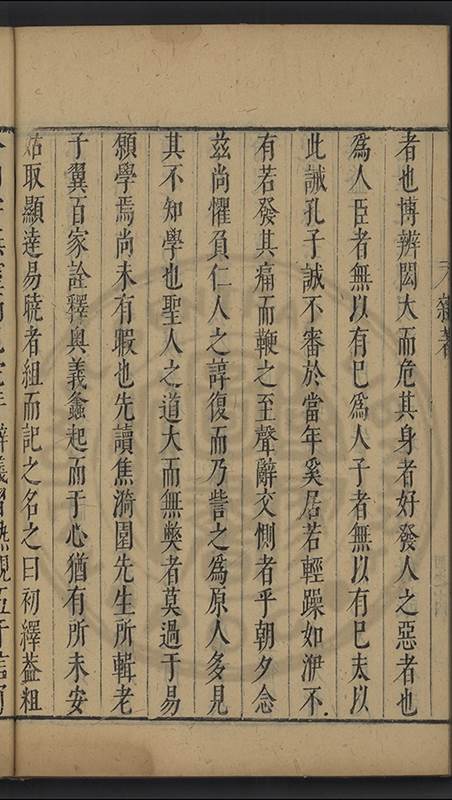 者也博辨閎大而危其身者好發人之惡者也
爲人臣者無以有巳爲人子者無以有巳夫以
此誡孔子誠不審於當年奚居若輕躁如洢不
有若發其痛而鞭之至聲辭交惻者乎朝夕念
兹尚懼負仁人之諄復而乃訾之爲原人多見
其不知學也聖人之道大而無獘者莫過于易
顧學焉尚未有暇也先讀焦漪園先生所輯老
子翼百家詮釋奥義螽起而于心猶有所未安
姑取顯達易曉者組而記之名之曰初繹葢粗